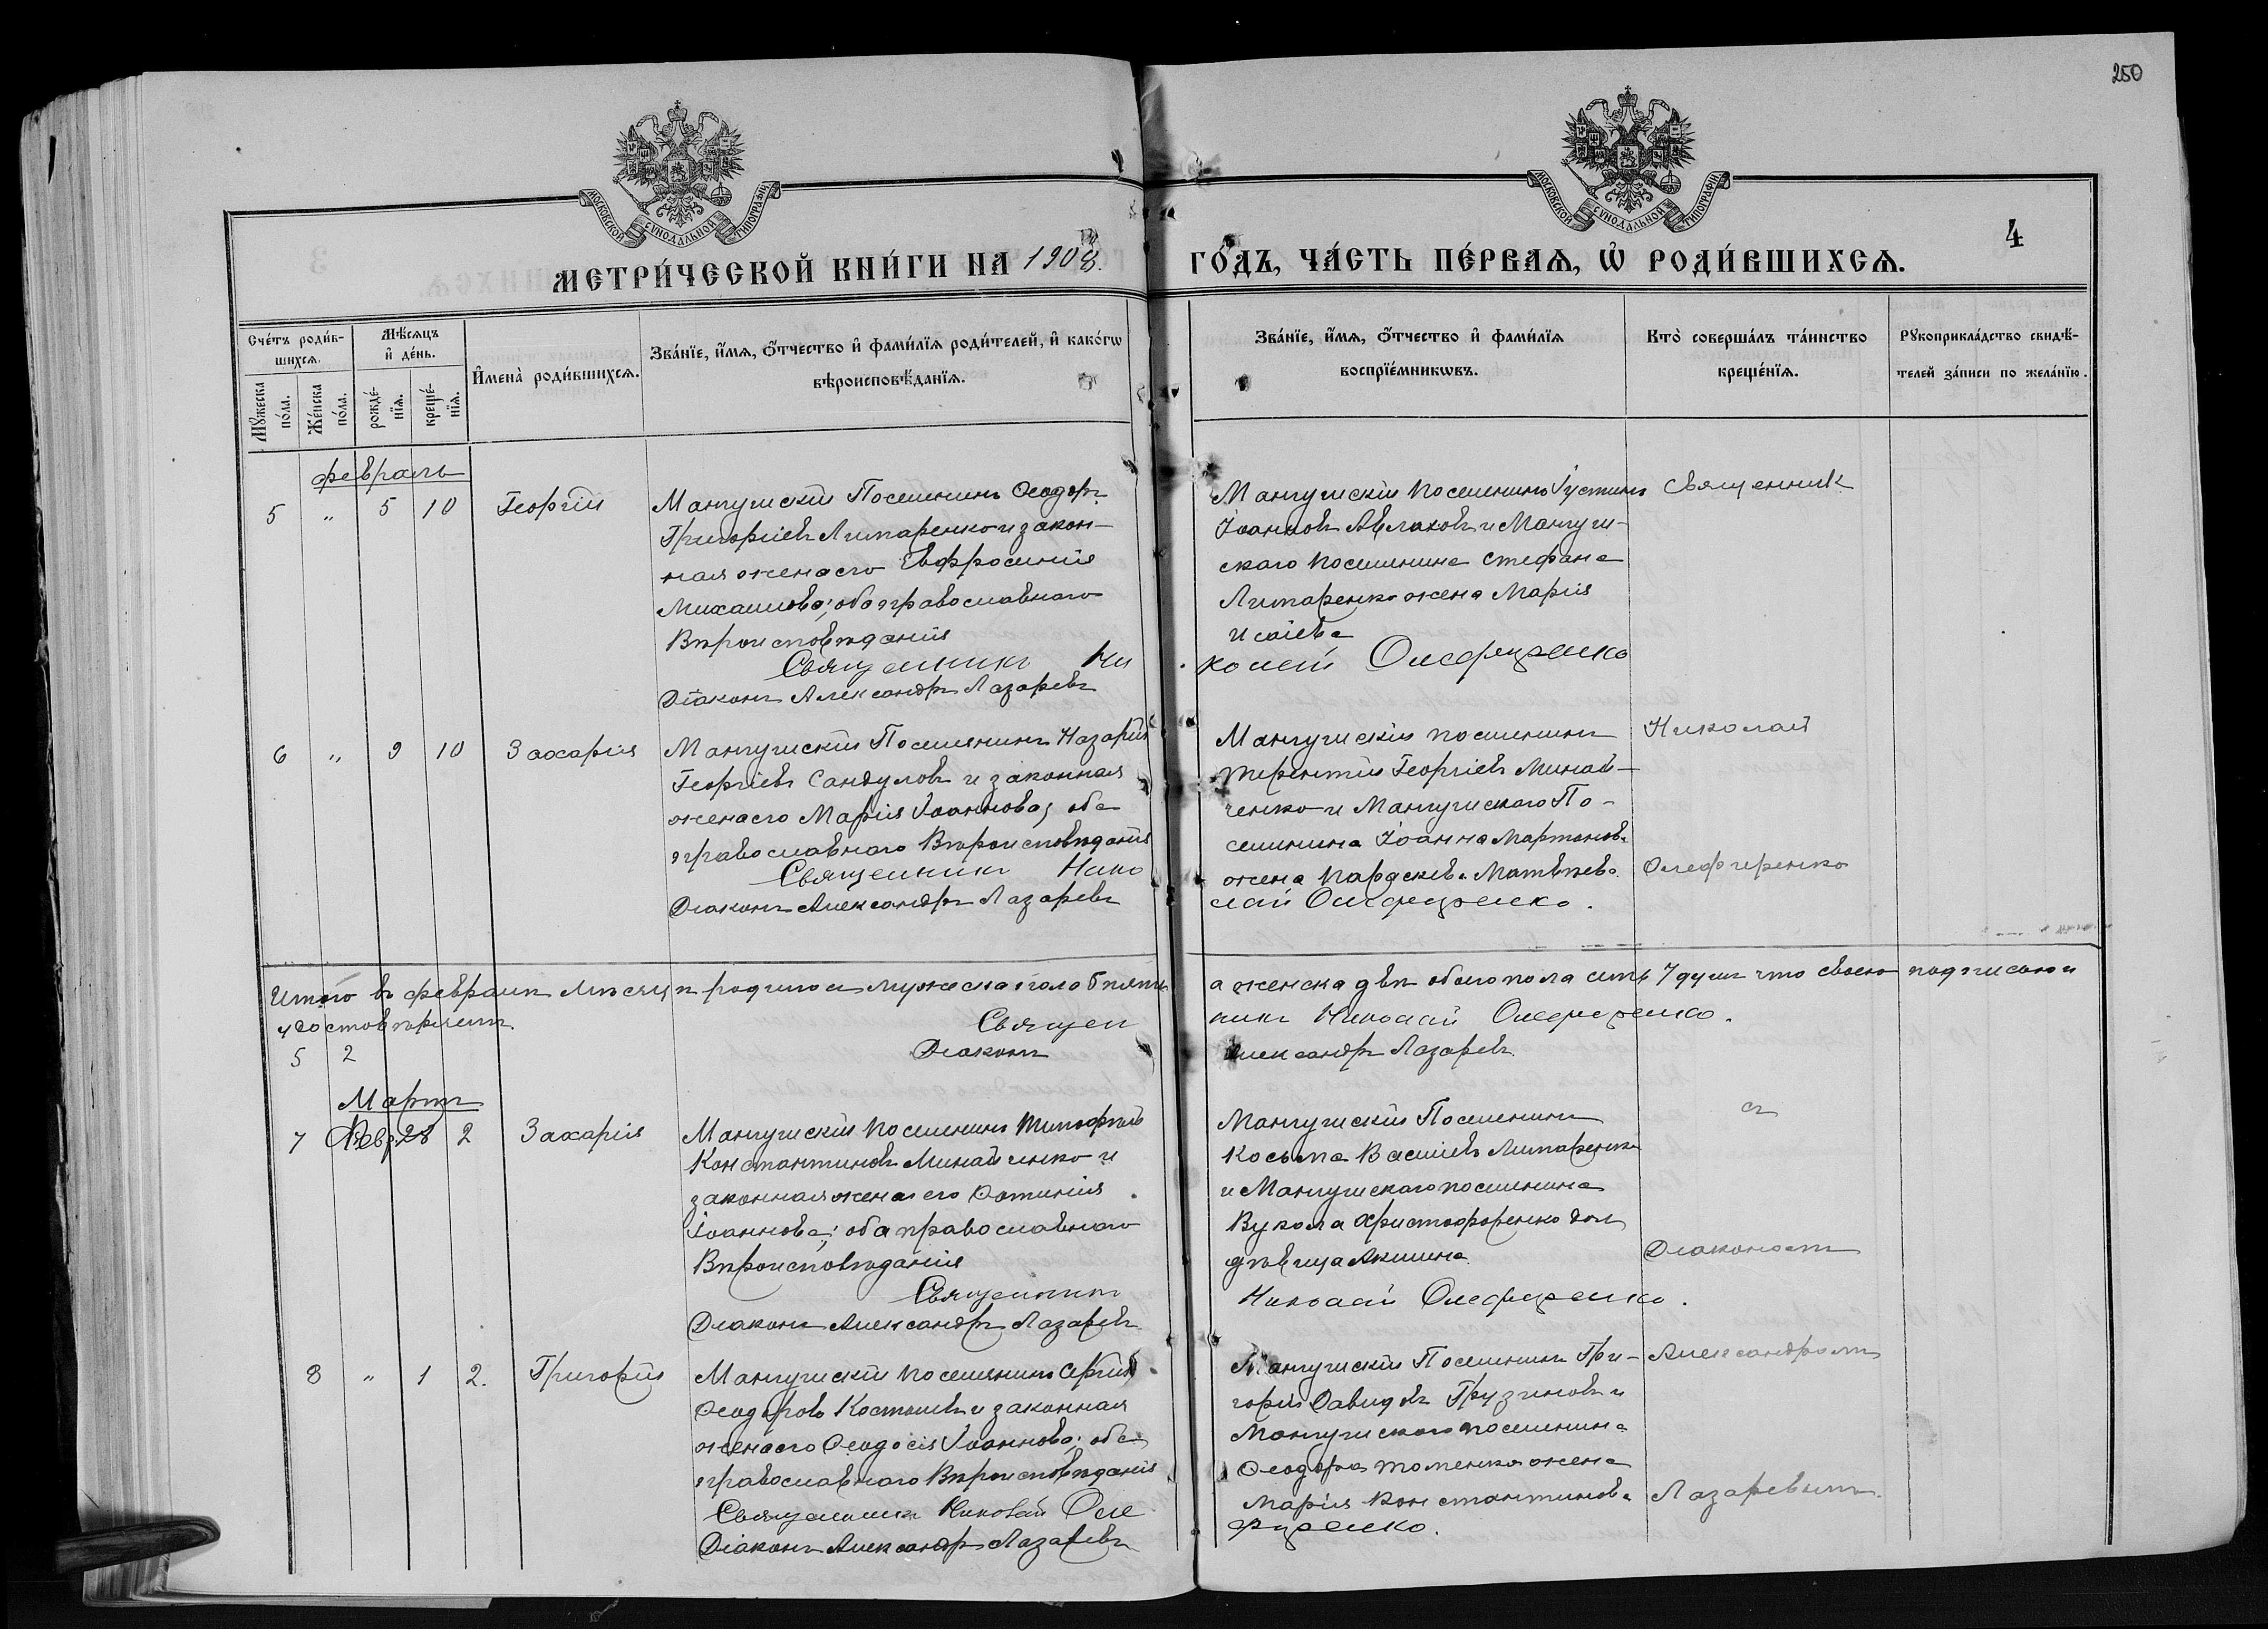 250
МОСКОВСКОЙ СУНОДАЛЬНОЙ ТИПОГРАФІИ
МОСКОВСКОЙ СУНОДАЛЬНОЙ ТИПОГРАФІИ
4
МЕТРИ́ЧЕСКОЙ КНИ́ГИ НА 1908.
ГО́ДЪ, ЧА́СТЬ ПЕ́РВАЯ, Ѡ҆ РОДИ́ВШИХСЯ.
Сче́тъ роди́в-
шихся.
Мꙋжеска по́ла.
Же́нска по́ла.
Мѣ́сяцъ
и҆ де́нь.
рожде́-
нїя.
креще́-
нїя.
И҆мена̀ роди́вшихся.
Зва́нїе, и҆́мя, ѻ҆́тчество и҆ фами́лїя роди́телей, и҆ како́гѡ
вѣроисповѣ́данїя.
Зва́нїе, и҆́мя, ѻ҆́тчество и҆ фами́лїя
воспрїе́мникѡвъ.
Кто̀ соверша́лъ та́инство
креще́нїя.
Рꙋкоприкла́дство свидѣ́-
телей за́писи по жела́нїю.
февраль
5 " 5 10 Георгій
Мангушскій Поселянинъ Ѳеодоръ
Григоріевъ Литаренко и закон-
ная жена его Евфросинія
Михаилова; оба православнаго
Вѣроисповѣданія
Священникъ Ни
Діаконъ Александръ Лазаревъ
Мангушскій поселянинъ Іустинъ
Іоанновъ Авлаховъ и Мангуш-
скаго поселянина Стефана
Литаренко жена Марія
Исаіева
колай Олефиренко
Священник
6 " 9 10 Захарія
Мангушскій Поселянинъ Назарій
Георгіевъ Сандуловъ и законная
жена его Марія Іоаннова; оба
православнаго Вѣроисповѣданія
Священникъ Нико
Діаконъ Александръ Лазаревъ
Мангушскій поселянинъ
Терентій Георгіевъ Минай-
ченко и Мангушскаго По-
селянина Іоанна Мартынов.
жена Параскева Матвѣева.
лай Олефиренко.
Николай
Олефиренко
Итого въ февралѣ мѣсяцѣ родилось мужеска пола 5 пять
а женска двѣ обоего пола семь 7 душъ что своею подписью и
удостовѣряемъ.
Священ
никъ Николай Олефиренко.
5 2
Діаконъ
Александръ Лазаревъ.
Мартъ
7 Февр. 28 2 Захарія
Мангушскій поселянинъ Тимофей
Константиновъ Минайченко и
законная жена его Фотинія
Іоаннова; оба православнаго
Вѣроисповѣданія
Священникъ
Діаконъ Александръ Лазаревъ
Мангушскій Поселянинъ
Косьма Васильевъ Литаренко
и Мангушскаго поселянина
Вукола Христофоренко дочь
дѣвица Акилина
Николай Олефиренко.
съ
Діакономъ
8 " 1 2. Григорій
Мангушскій поселянинъ Сергій
Ѳеодоровъ Костышевъ и законная
жена его Ѳеодосія Іоаннова; оба
православнаго Вѣроисповѣданія
Священникъ Николай Оле
Діаконъ Александръ Лазаревъ
Мангушскій Поселянинъ Гри-
горій Давидовъ Грузиновъ и
Мангушскаго поселянина
Ѳеодора Томенко жена
Марія Константинова
фиренко.
Александромъ
Лазаревымъ.